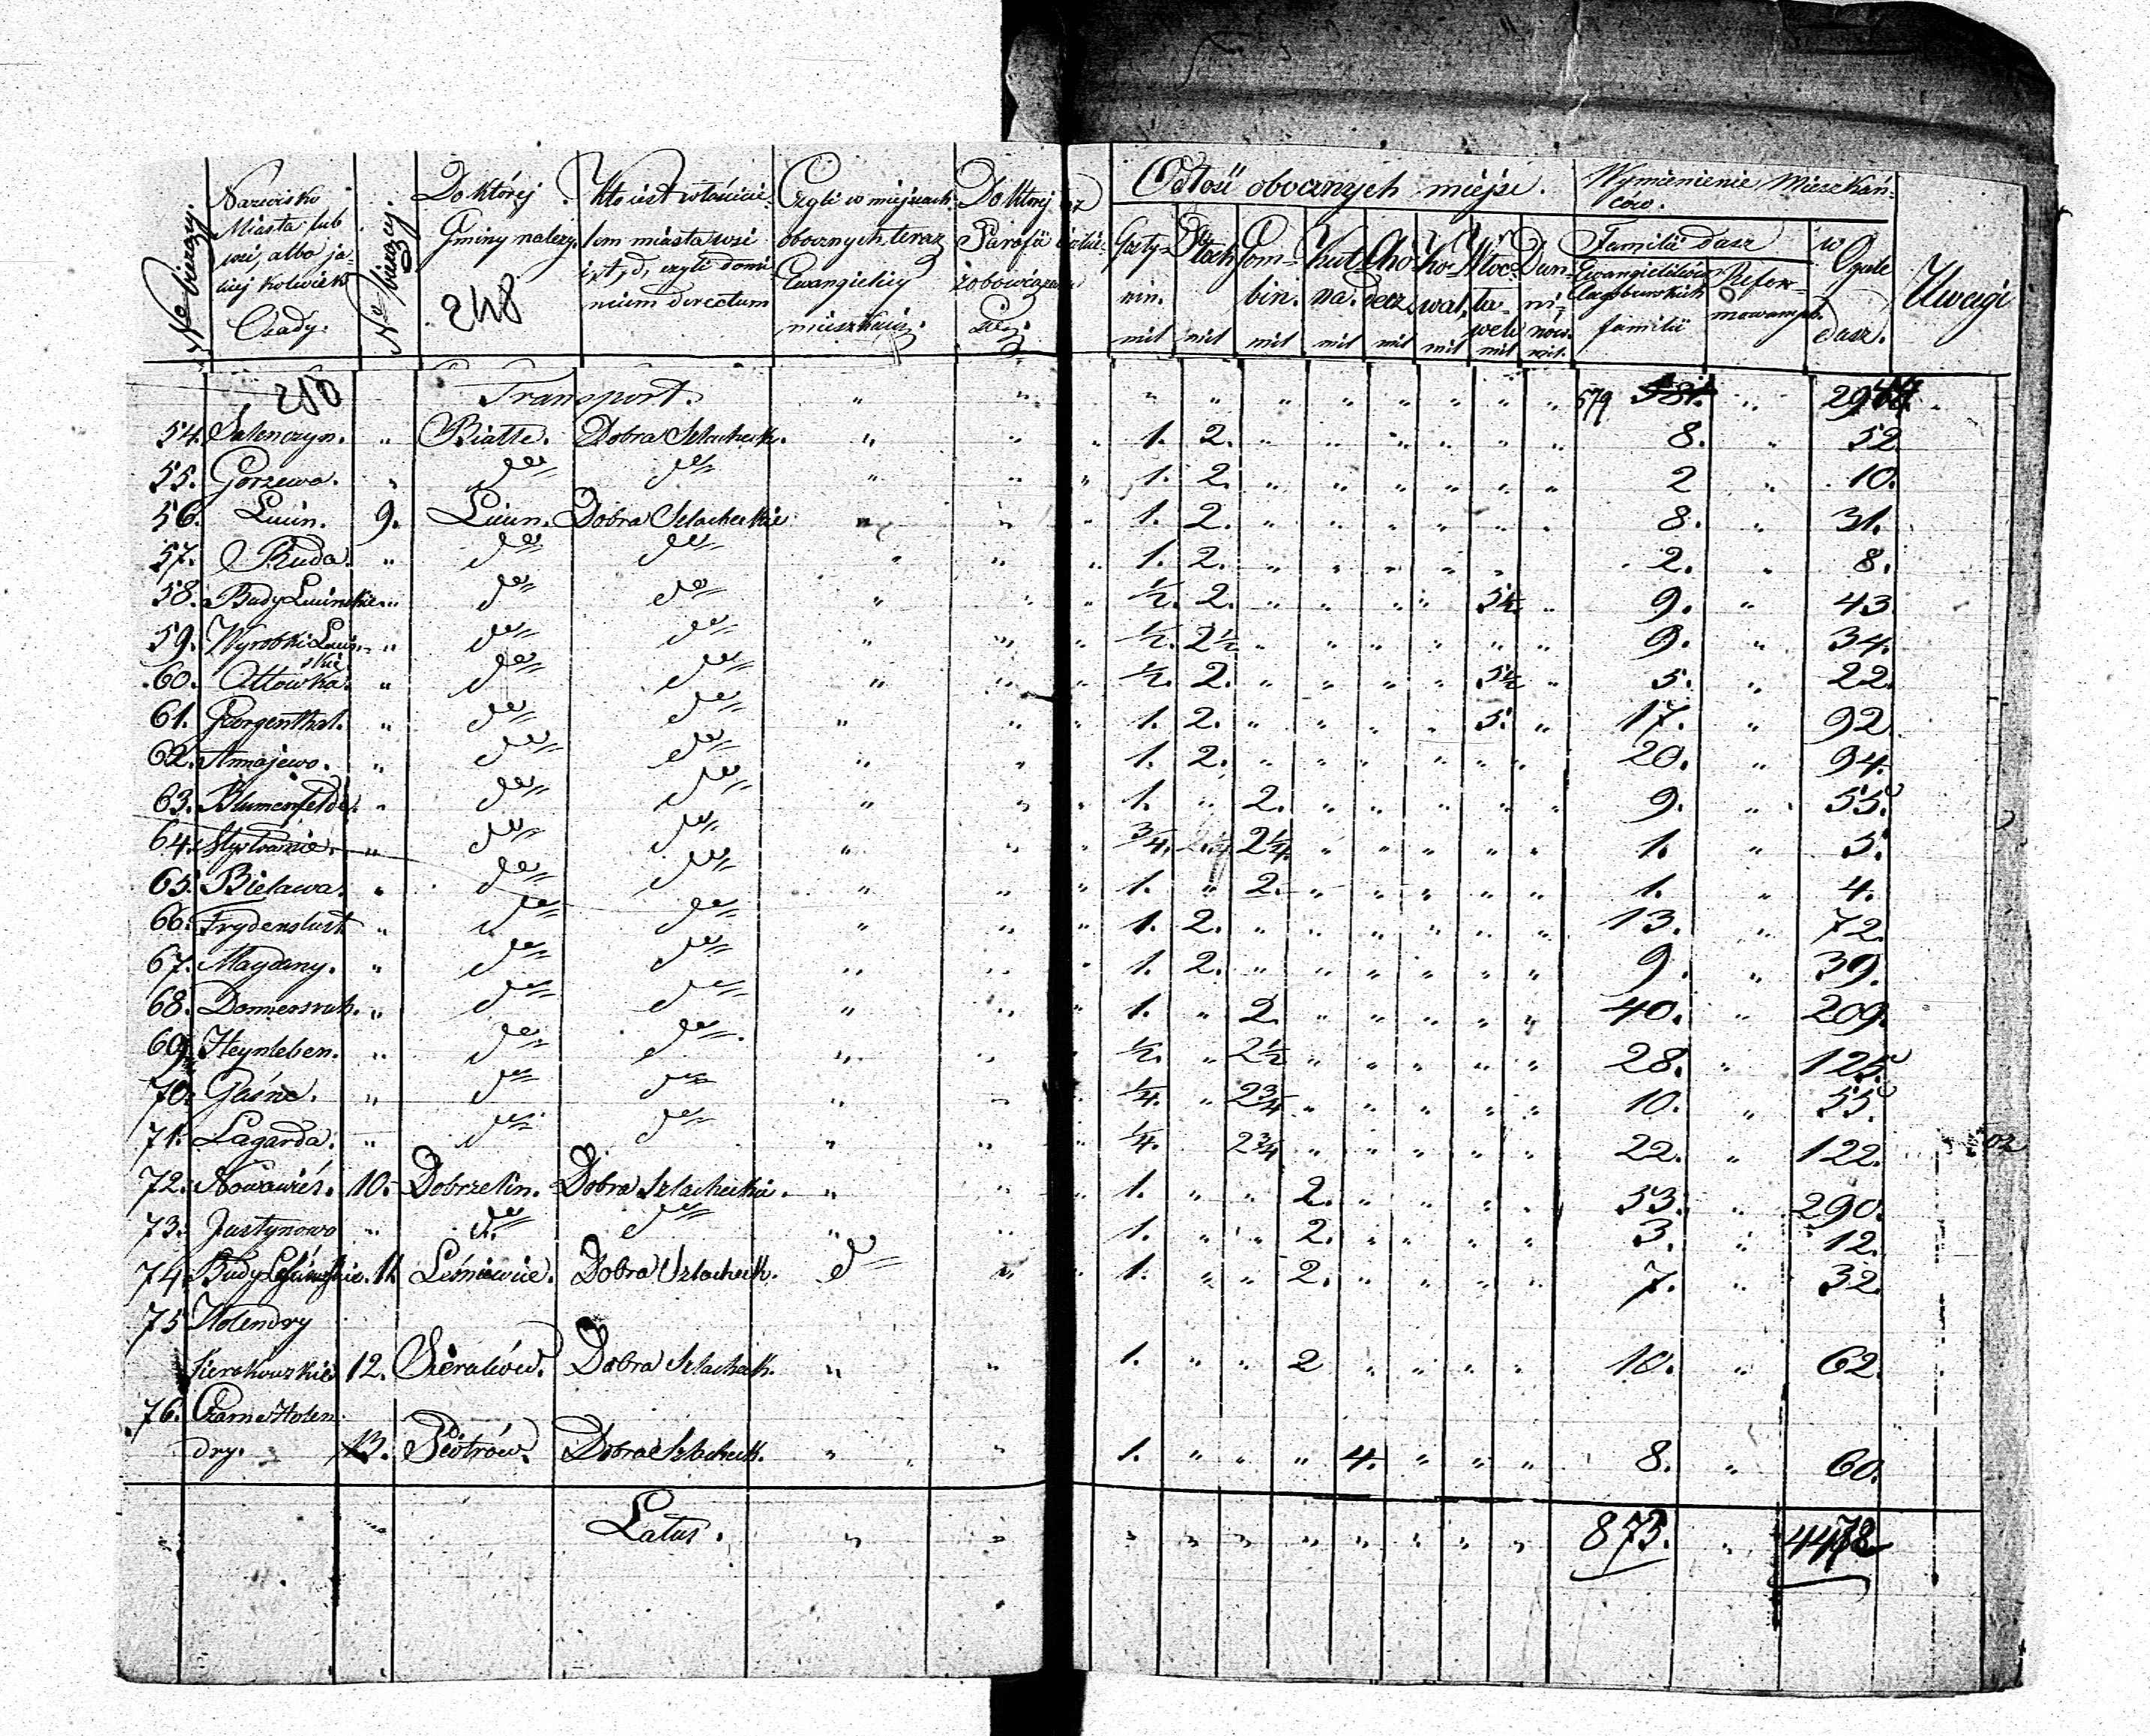 No bieżący.
Nazwisko
Miasta lub
wsi, albo ja-
kiej kolwiek
Osady.
No bieżący.
Do której
Gminy należy.
248
Kto jest właścicie-
lem miasta wsi
i.t.d. czyli domi-
nium directum
Czyli w miejscach
obocznych teraz
Ewangielicy
mieszkają.
Do której
Parafii
zobowiązani
są.
Odłość obocznych miejsc.
Gosty-
nin.
mil
Płock
mil
Gom-
bin.
mil
Kut
na.
mil
Cho-
decz
mil
Ko-
wal,
mil
Włoc-
ła-
wek
mil
Dun-
ni-
now.
mil.
Wymienienie Mieszkań-
ców.
Familii dusz
Ewangielików
Augsburskich
familii
Refor-
mowanych.
w
Ogule
dusz.
Uwagi
250 Transport. " " " " " " " " " " 579 581. " 29
54. Salenczyn. " Białłe. Dobra Szlacheck. " " " 1. 2. " " " " " " 8. " 52
55. Gorzewo. " do do " " " 1. 2. " " " " " " 2 " 10.
56. Lucin. 9. Lucin. Dobra Szlacheckie " " " 1. 2. " " " " " " 8. " 31.
57. Ruda. " do do " " " 1. 2. " " " " " " 2. " 8.
58. Budy Lucinskie " do do " " " 1/2. 2. " " " " 5 1/2 " 9. " 43
59. Wyrobki Lucin-
skie " do do " " " 1/2. 2 1/2 " " " " " " 9. " 34.
60. Ottowka. " do do " " " 1/2. 2. " " " " 5 1/2 " 5. " 22.
61. Georgenthal. " do do " " " 1. 2. " " " " 5. " 17. " 92
62. Annajewo. " do do " " " 1. 2. " " " " " " 20. " 94.
63. Blumenfelde. " do do " " " 1. " 2. " " " " " 9. " 55.
64. " do do " " " 3/4. 2 1/4. " " " " " 1. " 5.
65. Bielawa. " do do " " " 1. " 2. " " " " " 1. " 4.
66. Frydenslust " do do " " " 1. 2. " " " " " " 13. " 72.
67. Maydany. " do do " " " 1. 2. " " " " " " 9. " 39.
68. Donnersruh. " do do " " " 1. " 2. " " " " " 40. " 209.
69. Heynleben. " do do " " " 1/2. " 2 1/2 " " " " " 28. " 125.
70. Gaśne. " do do " " " 1/4. " 2 3/4 " " " " " 10. " 55.
71. Lagarda. " do do " " " 1/4. 2 3/4 " " " " " 22. " 122.
72. Nowawieś. 10. Dobrzelin. Dobra Szlacheckie. " " " 1. " " 2. " " " " 53. " 290.
73. Justynowo " do do " " " 1. " " 2. " " " " 3. " 12.
74. Budy 11. Leśniewice. Dobra Szlacheck. do " " 1. " " 2. " " " " 7. " 32.
75 Holendry
Sierakowskie 12. Sieraków. Dobra Szlacheck. " " 1. " " 2 " " " " 10. " 62.
76. Czarne Holen-
dry. 13. Piotrów. Dobra Szlacheck. " " 1. " " " 4. " " " 8. " 60.
Latus. " " " " " " " " " " 873. " 4478